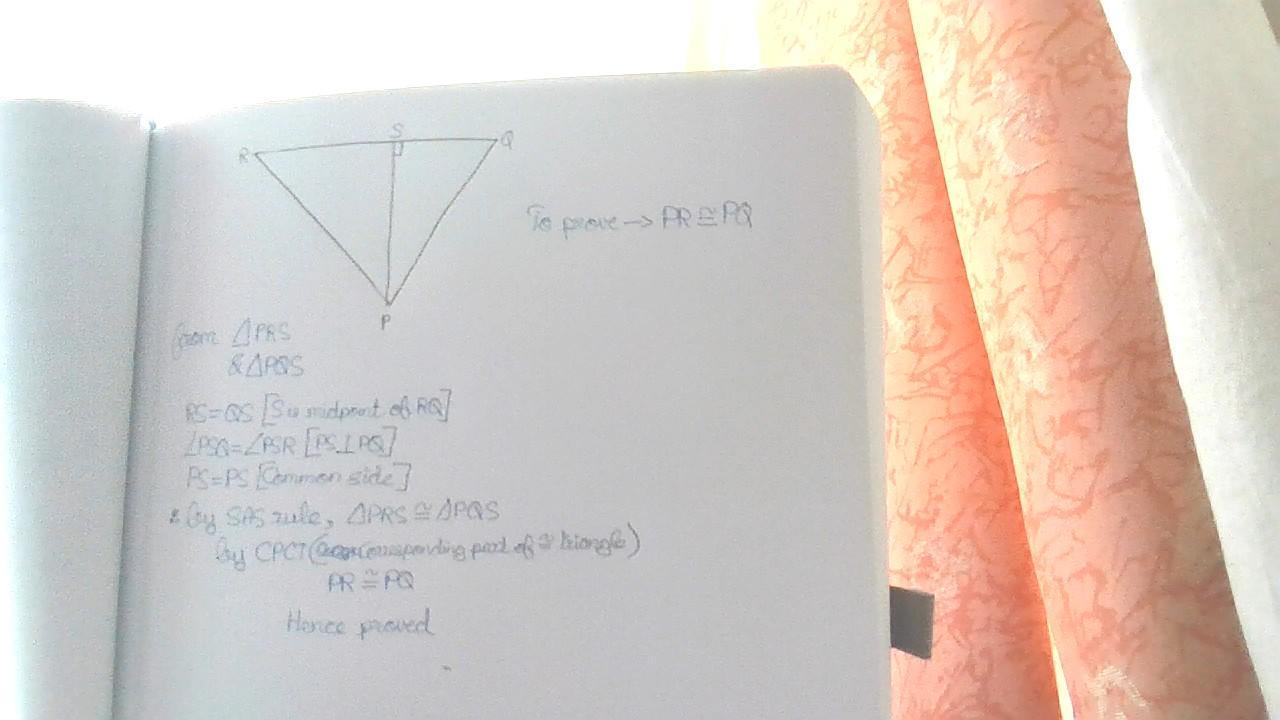 S
R
Q
To prove → PR ≅ PQ
P
from △PRS
& △PQS
RS=QS [S is midpoint of RQ]
∠PSQ=∠PSR [PS⊥PQ]
PS=PS [Common side]
by SAS rule, △PRS ≅ △PQS
by CPCT (corresponding part of ≅ triangle)
PR ≅ PQ
Hence proved